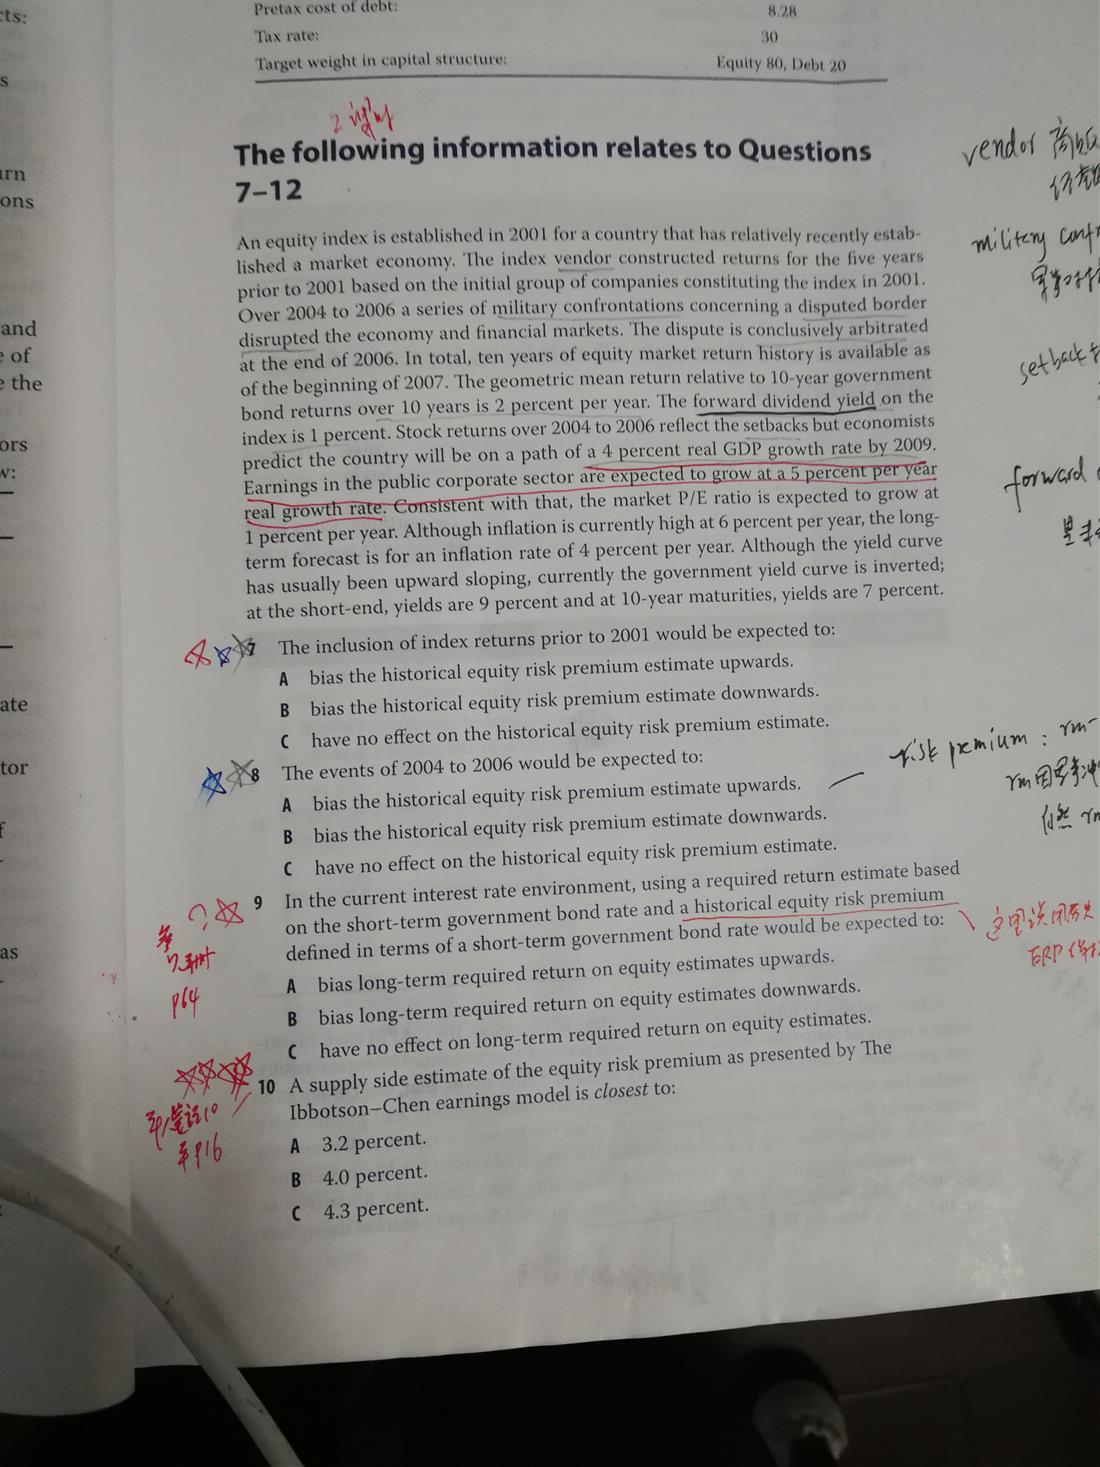 cts:
Pretax cost of debt: 8.28
Tax rate: 30
s
Target weight in capital structure: Equity 80, Debt 20
2
The following information relates to Questions
7–12
vendor
urn
ons
An equity index is established in 2001 for a country that has relatively recently estab-
lished a market economy. The index vendor constructed returns for the five years
prior to 2001 based on the initial group of companies constituting the index in 2001.
Over 2004 to 2006 a series of military confrontations concerning a disputed border
disrupted the economy and financial markets. The dispute is conclusively arbitrated
at the end of 2006. In total, ten years of equity market return history is available as
of the beginning of 2007. The geometric mean return relative to 10-year government
bond returns over 10 years is 2 percent per year. The forward dividend yield on the
index is 1 percent. Stock returns over 2004 to 2006 reflect the setbacks but economists
predict the country will be on a path of a 4 percent real GDP growth rate by 2009.
Earnings in the public corporate sector are expected to grow at a 5 percent per year
real growth rate. Consistent with that, the market P/E ratio is expected to grow at
1 percent per year. Although inflation is currently high at 6 percent per year, the long-
term forecast is for an inflation rate of 4 percent per year. Although the yield curve
has usually been upward sloping, currently the government yield curve is inverted;
at the short-end, yields are 9 percent and at 10-year maturities, yields are 7 percent.
military
setback
forward
and
e of
e the
ors
w:
ate
tor
f
as
7 The inclusion of index returns prior to 2001 would be expected to:
A bias the historical equity risk premium estimate upwards.
B bias the historical equity risk premium estimate downwards.
C have no effect on the historical equity risk premium estimate.
8 The events of 2004 to 2006 would be expected to:
A bias the historical equity risk premium estimate upwards.
B bias the historical equity risk premium estimate downwards.
C have no effect on the historical equity risk premium estimate.
risk premium : rm-
9 In the current interest rate environment, using a required return estimate based
on the short-term government bond rate and a historical equity risk premium
defined in terms of a short-term government bond rate would be expected to:
A bias long-term required return on equity estimates upwards.
B bias long-term required return on equity estimates downwards.
C have no effect on long-term required return on equity estimates.
?
P64
ERP
10 A supply side estimate of the equity risk premium as presented by The
Ibbotson–Chen earnings model is closest to:
A 3.2 percent.
B 4.0 percent.
C 4.3 percent.
P16